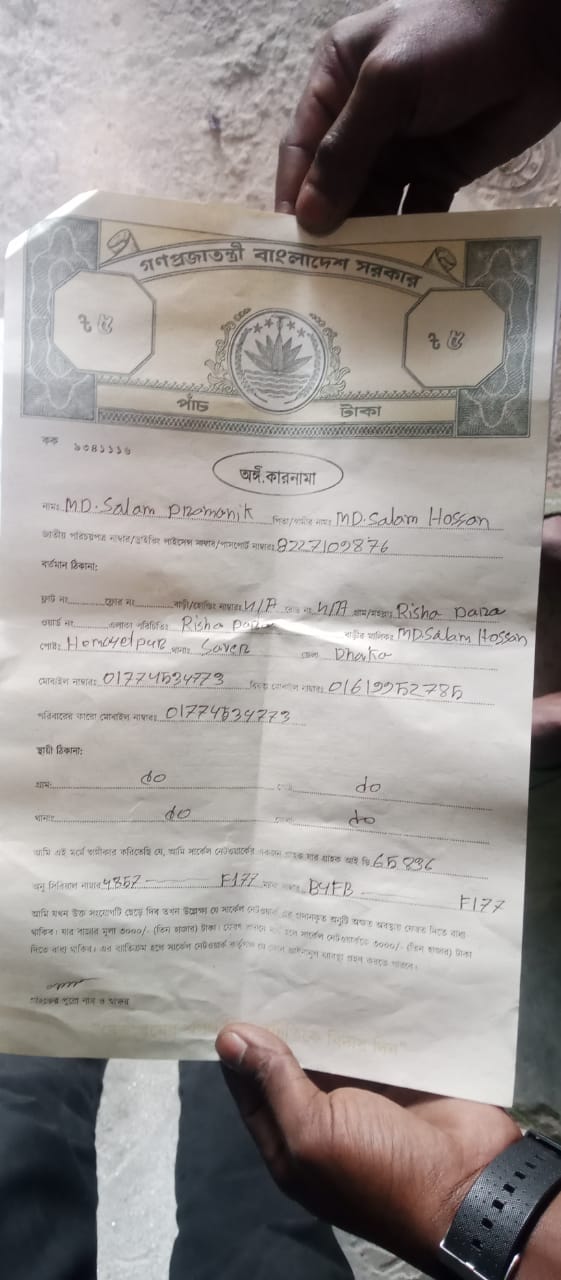 গণপ্রজাতন্ত্রী বাংলাদেশ সরকার
৳ ৫ ৳ ৫
পাঁচ টাকা
কক ৯৩৪১১১৬
অঙ্গীকারনামা
নামঃ MD. Salam Promanik পিতা/স্বামীর নামঃ MD. Salam Hossan
জাতীয় পরিচয়পত্র নাম্বার/ড্রাইভিং লাইসেন্স নাম্বার/পাসপোর্ট নাম্বারঃ 8227109876
বর্তমান ঠিকানা:
ফ্ল্যাট নং ফ্লোর নং বাড়ী/হোল্ডিং নাম্বারঃ N/A রোড নং N/A গ্রাম/মহল্লাঃ Risha para
ওয়ার্ড নং এলাকা পরিচিতিঃ Risha para বাড়ীর মালিকঃ MD.Salam Hossan
পোষ্টঃ Hemayetpur থানাঃ Saver জেলা Dhaka
মোবাইল নাম্বারঃ 01774534773 বিকল্প মোবাইল নাম্বারঃ 01619952785
পরিবারের কারো মোবাইল নাম্বারঃ 01774534773
স্থায়ী ঠিকানা:
গ্রামঃ do do
থানাঃ do do
আমি এই মর্মে স্বীকার করিতেছি যে, আমি সার্কেল নেটওয়ার্কের একজন গ্রাহক যার গ্রাহক আই ডি 65896
অনু সিরিয়াল নাম্বার 4857 F177 B4FB F177
আমি যখন উক্ত সংযোগটি ছেড়ে দিব তখন উল্লেখ্য যে সার্কেল নেটওয়ার্ক এর প্রদানকৃত অনুটি অক্ষত অবস্থায় ফেরত দিতে বাধ্য
থাকিব। যার বাজার মূল্য ৩০০০/- (তিন হাজার) টাকা। হলে সার্কেল নেটওয়ার্ককে ৩০০০/- (তিন হাজার) টাকা
দিতে বাধ্য থাকিব। এর ব্যতিক্রম হলে সার্কেল নেটওয়ার্ক কর্তৃপক্ষ যে কোন আইনানুগ ব্যবস্থা গ্রহন করতে পারবে।
গ্রাহকের পুরো নাম ও স্বাক্ষর